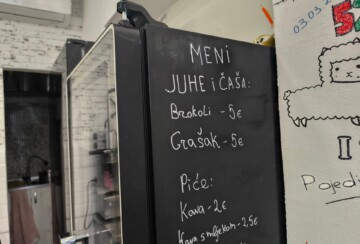 MENI
JUHE i ČAŠA:
Brokoli - 5€
Grašak - 5€
Piće:
Kava - 2€
Kava s mlijekom - 2,5€
03.03.